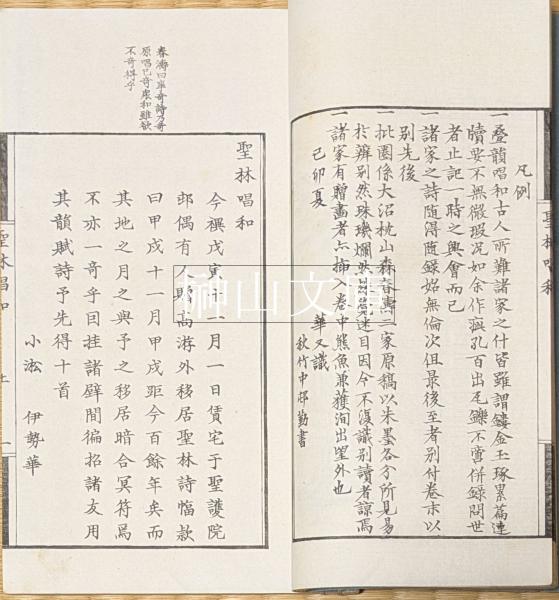 凡例
一 疊韻唱和古人所難諸家之什皆雖謂鏤金玉琢累篇連
牘安不無微瑕况如余作瘢孔百出瓦礫不啻併錄問世
者止記一時之興會而已
一 諸家之詩随得随錄始無倫次但最後至者別付卷末以
別先後
一 批圈係大沼枕山森春濤二家原稿以朱墨各分所見易
於辨別然珠璣爛然
迷目因今不復識別讀者諒焉
一 諸家有贈畫者亦插卷中熊魚兼獲洵出望外也
己卯夏 華又識
秋竹中邨勤書
聖林唱和
春濤曰事奇詩乃奇
原唱已奇衆和雖欲
不奇得乎
聖林唱和
今禩戊寅十一月一日賃宅于聖護院
邨偶有人贈高游外移居聖林詩幅款
曰甲戌十一月甲戌距今百餘年矣而
其地之月之與予之移居暗合冥符焉
不亦一奇乎因挂諸壁間徧招諸友用
其韻賦詩予先得十首
小淞 伊勢華
聖林唱和 上 一
榊山文庫